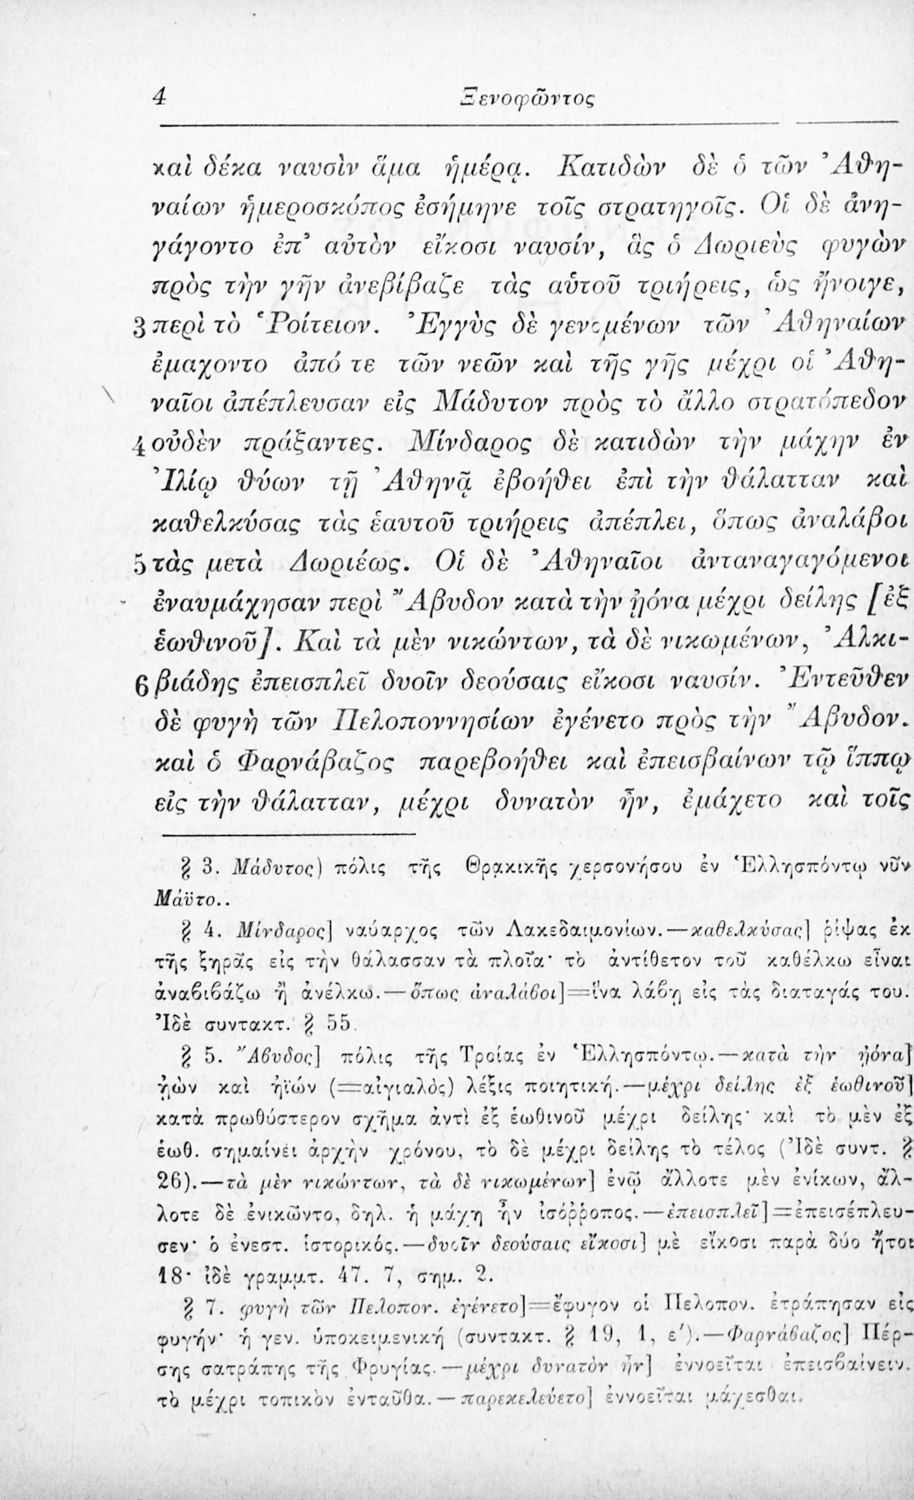 4 Ξενοφῶντος
καὶ δέκα ναυσὶν ἅμα ἡμέρᾳ. Κατιδὼν δὲ ὁ τῶν Ἀθη-
ναίων ἡμεροσκόπος ἐσήμηνε τοῖς στρατηγοῖς. Οἱ δὲ ἀνη-
γάγοντο ἐπ' αὐτὸν εἴκοσι ναυσίν, ἃς ὁ Δωριεὺς φυγὼν
πρὸς τὴν γῆν ἀνεβίβαζε τὰς αὑτοῦ τριήρεις, ὡς ἤνοιγε,
3 περὶ τὸ Ῥοίτειον. Ἐγγὺς δὲ γενομένων τῶν Ἀθηναίων
ἐμαχοντο ἀπό τε τῶν νεῶν καὶ τῆς γῆς μέχρι οἱ Ἀθη-
ναῖοι ἀπέπλευσαν εἰς Μάδυτον πρὸς τὸ ἄλλο στρατόπεδον
4 οὐδὲν πράξαντες. Μίνδαρος δὲ κατιδὼν τὴν μάχην ἐν
Ἰλίῳ θύων τῇ Ἀθηνᾷ ἐβοήθει ἐπὶ τὴν θάλατταν καὶ
καθελκύσας τὰς ἑαυτοῦ τριήρεις ἀπέπλει, ὅπως ἀναλάβοι
5 τὰς μετὰ Δωριέως. Οἱ δὲ Ἀθηναῖοι ἀνταναγαγόμενοι
ἐναυμάχησαν περὶ Ἄβυδον κατὰ τὴν ᾐόνα μέχρι δείλης [ἐξ
ἑωθινοῦ]. Καὶ τὰ μὲν νικώντων, τὰ δὲ νικωμένων, Ἀλκι-
6 βιάδης ἐπεισπλεῖ δυοῖν δεούσαις εἴκοσι ναυσίν. Ἐντεῦθεν
δὲ φυγὴ τῶν Πελοποννησίων ἐγένετο πρὸς τὴν Ἄβυδον.
καὶ ὁ Φαρνάβαζος παρεβοήθει καὶ ἐπεισβαίνων τῷ ἵππῳ
εἰς τὴν θάλατταν, μέχρι δυνατὸν ἦν, ἐμάχετο καὶ τοῖς
§ 3. Μάδυτος) πόλις τῆς Θρᾳκικῆς χερσονήσου ἐν Ἑλλησπόντῳ νῦν
Μάϋτο..
§ 4. Μίνδαρος] ναύαρχος τῶν Λακεδαιμονίων.—καθελκύσας] ῥίψας ἐκ
τῆς ξηρᾶς εἰς τὴν θάλασσαν τὰ πλοῖα· τὸ ἀντίθετον τοῦ καθέλκω εἶναι
ἀναβιβάζω ἢ ἀνέλκω.—ὅπως ἀναλάβοι]=ἵνα λάβῃ εἰς τὰς διαταγάς του.
Ἰδὲ συντακτ. § 55.
§ 5. Ἄβυδος] πόλις τῆς Τροίας ἐν Ἑλλησπόντῳ.—κατὰ τὴν ᾐόνα]
ᾐὼν καὶ ἠϊών (=αἰγιαλὸς) λέξις ποιητική.—μέχρι δείλης ἐξ ἑωθινοῦ]
κατὰ πρωθύστερον σχῆμα ἀντὶ ἐξ ἑωθινοῦ μέχρι δείλης· καὶ τὸ μὲν ἐξ
ἑωθ. σημαίνει ἀρχὴν χρόνου, τὸ δὲ μέχρι δείλης τὸ τέλος (Ἰδὲ συντ. §
26).—τὰ μὲν νικώντων, τὰ δὲ νικωμένων] ἐνῷ ἄλλοτε μὲν ἐνίκων, ἄλ-
λοτε δὲ ἐνικῶντο, δηλ. ἡ μάχη ἦν ἰσόῤῥοπος.—ἐπεισπλεῖ]=ἐπεισέπλευ-
σεν· ὁ ἐνεστ. ἱστορικός.—δυοῖν δεούσαις εἴκοσι] μὲ εἴκοσι παρὰ δύο ἤτοι
18· ἰδὲ γραμματ. 47. 7, σημ. 2.
§ 7. φυγὴ τῶν Πελοπον. ἐγένετο]=ἔφυγον οἱ Πελοπον. ἐτράπησαν εἰς
φυγήν· ἡ γεν. ὑποκειμενική (συντακτ. § 19, 1, ε').—Φαρνάβαζος] Πέρ-
σης σατράπης τῆς Φρυγίας.—μέχρι δυνατὸν ἦν] ἐννοεῖται ἐπεισβαίνειν.
τὸ μέχρι τοπικὸν ἐνταῦθα.—παρεκελεύετο] ἐννοεῖται μάχεσθαι.